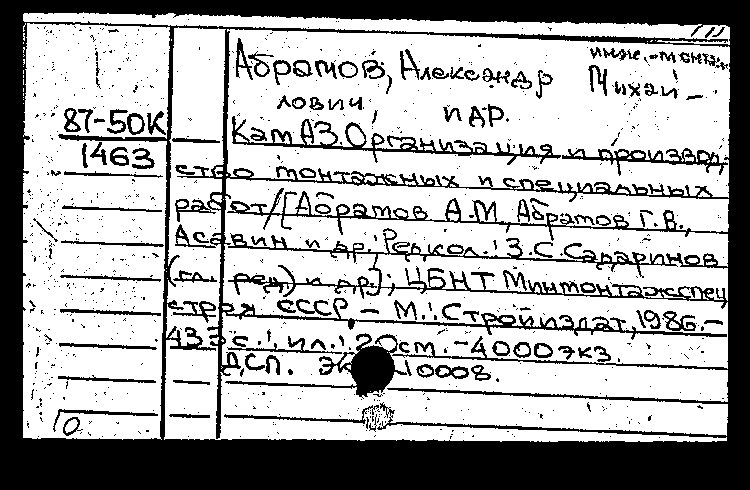 Абрамов, Александр Михай-
лович, и др.
87-50К
1463
КамАЗ. Организация и производ-
ство монтажных и специальных
работ/[Абрамов А.М., Абрамов Г.В.,
Асавин и др.; Редкол.: З.С. Садаринов
(гл. ред) и др.]; ЦБНТ Минмонтажспец
строя СССР. - М.: Стройиздат, 1986. -
433 с.: ил.; 20см. - 4000 экз.
ДСП. Эк 10008.
10